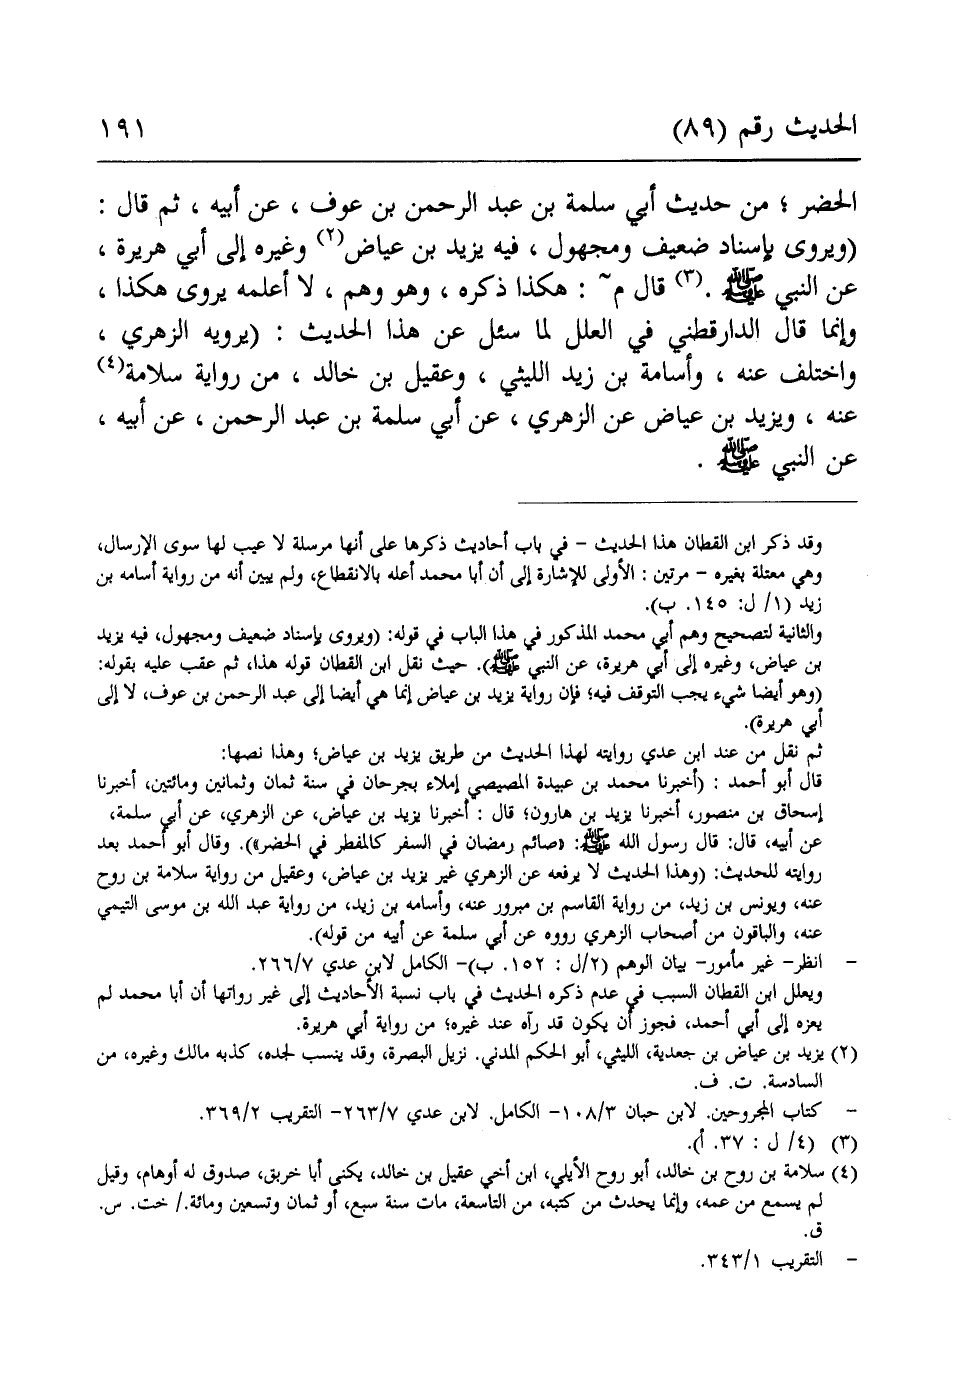 الحديث رقم (٨٩) ١٩١
الحضر ؛ من حديث أبي سلمة بن عبد الرحمن بن عوف ، عن أبيه ، ثم قال :
(ويروى بإسناد ضعيف ومجهول ، فيه يزيد بن عياض(٢) وغيره إلى أبي هريرة ،
عن النبي ﷺ .(٣) قال م~ : هكذا ذكره ، وهو وهم ، لا أعلمه يروى هكذا ،
وإنما قال الدارقطني في العلل لما سئل عن هذا الحديث : (يرويه الزهري ،
واختلف عنه ، وأسامة بن زيد الليثي ، وعقيل بن خالد ، من رواية سلامة(٤)
عنه ، ويزيد بن عياض عن الزهري ، عن أبي سلمة بن عبد الرحمن ، عن أبيه ،
عن النبي ﷺ .
وقد ذكر ابن القطان هذا الحديث - في باب أحاديث ذكرها على أنها مرسلة لا عيب لها سوى الإرسال،
وهي معتلة بغيره - مرتين : الأولى للإشارة إلى أن أبا محمد أعله بالانقطاع، ولم يبين أنه من رواية أسامه بن
زيد (١/ ل: ١٤٥. ب).
والثانية لتصحيح وهم أبي محمد المذكور في هذا الباب في قوله: (ويروى بإسناد ضعيف ومجهول، فيه يزيد
بن عياض، وغيره إلى أبي هريرة، عن النبي ﷺ). حيث نقل ابن القطان قوله هذا، ثم عقب عليه بقوله:
(وهو أيضا شيء يجب التوقف فيه؛ فإن رواية يزيد بن عياض إنما هي أيضا إلى عبد الرحمن بن عوف، لا إلى
أبي هريرة).
ثم نقل من عند ابن عدي روايته لهذا الحديث من طريق يزيد بن عياض؛ وهذا نصها:
قال أبو أحمد : (أخبرنا محمد بن عبيدة المصيصي إملاء بجرحان في سنة ثمان وثمانين ومائتين، أخبرنا
إسحاق بن منصور، أخبرنا يزيد بن هارون؛ قال : أخبرنا يزيد بن عياض، عن الزهري، عن أبي سلمة،
عن أبيه، قال: قال رسول الله ﷺ: «صائم رمضان في السفر كالمفطر في الحضر»). وقال أبو أحمد بعد
روايته للحديث: (وهذا الحديث لا يرفعه عن الزهري غير يزيد بن عياض، وعقيل من رواية سلامة بن روح
عنه، ويونس بن زيد، من رواية القاسم بن مبرور عنه، وأسامه بن زيد، من رواية عبد الله بن موسى التيمي
عنه، والباقون من أصحاب الزهري رووه عن أبي سلمة عن أبيه من قوله).
- انظر- غير مأمور- بيان الوهم (٢/ل : ١٥٢. ب)- الكامل لابن عدي ٢٦٦/٧.
ويعلل ابن القطان السبب في عدم ذكره الحديث في باب نسبة الأحاديث إلى غير رواتها أن أبا محمد لم
يعزه إلى أبي أحمد، فجوز أن يكون قد رآه عند غيره؛ من رواية أبي هريرة.
(٢) يزيد بن عياض بن جعدية، الليثي، أبو الحكم المدني. نزيل البصرة، وقد ينسب لجده، كذبه مالك وغيره، من
السادسة. ت. ف.
- كتاب المجروحين. لابن حبان ١٠٨/٣- الكامل. لابن عدي ٢٦٣/٧- التقريب ٣٦٩/٢.
(٣) (٤/ ل : ٣٧. أ).
(٤) سلامة بن روح بن خالد، أبو روح الأيلي، ابن أخي عقيل بن خالد، يكنى أبا خربق، صدوق له أوهام، وقيل
لم يسمع من عمه، وإنما يحدث من كتبه، من التاسعة، مات سنة سبع، أو ثمان وتسعين ومائة./ خت. س.
ق.
- التقريب ٣٤٣/١.